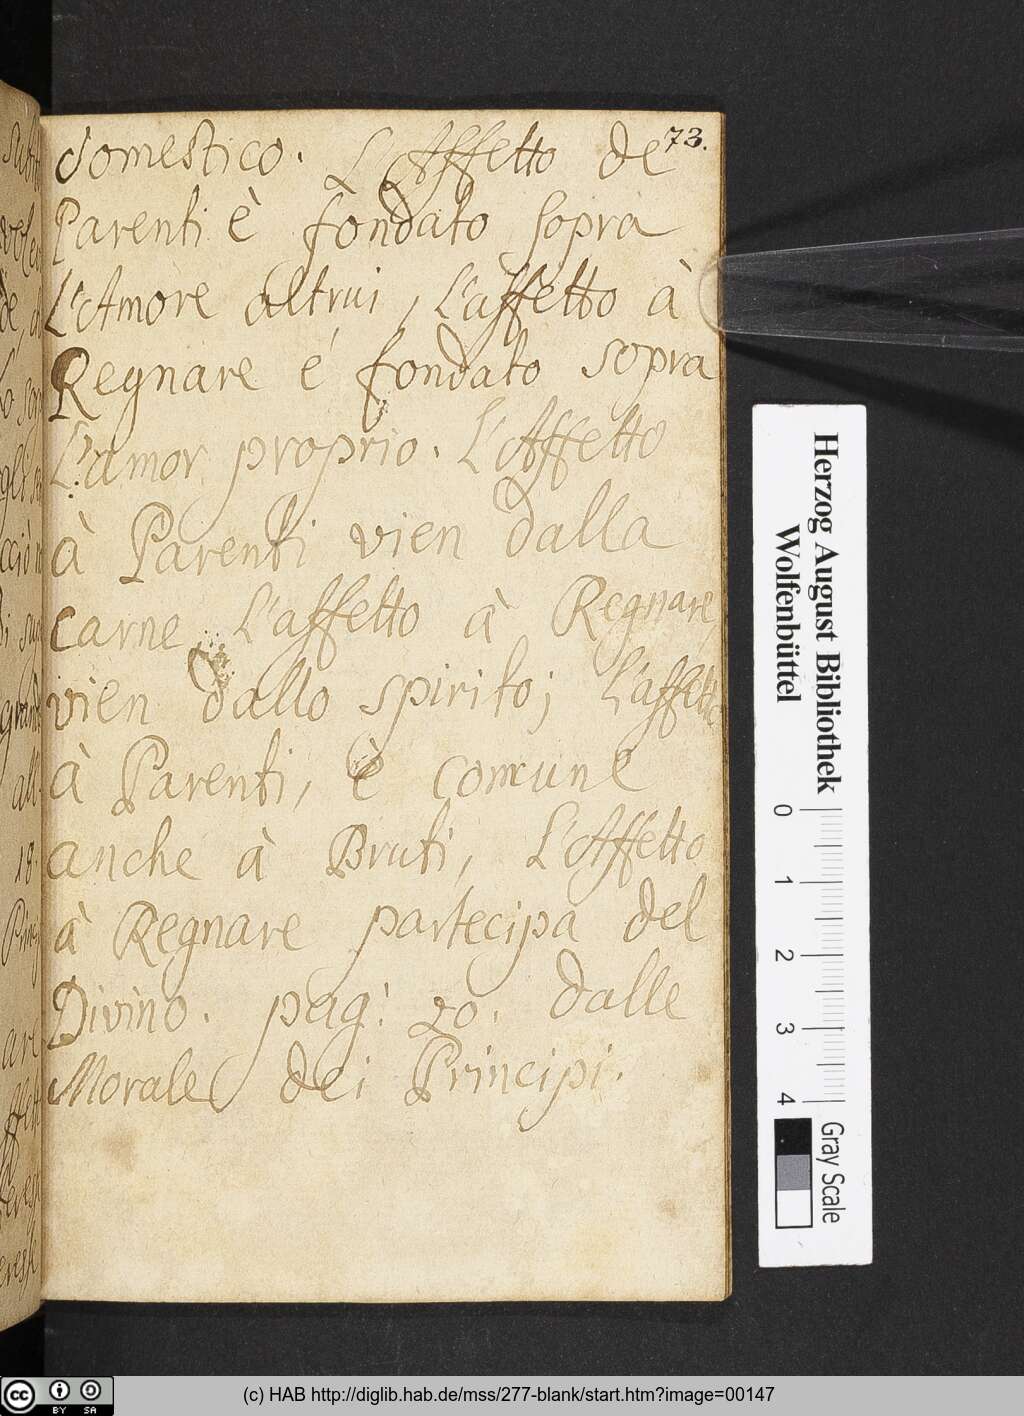 73.
domestico. L'Affetto de
Parenti è fondato sopra
L'Amore altrui, L'affetto à
Regnare é fondato sopra
L'amor proprio. L'Affetto
à Parenti vien dalla
carne, L'affetto à Regnare,
vien dallo spirito; L'affetto
à Parenti, è comune
anche à Bruti, L'Affetto
à Regnare partecipa del
Divino. pag: 20. dalle
Morale dei Principi.
Herzog August Bibliothek
Wolfenbüttel
0 1 2 3 4
Gray Scale
cc BY SA
(c) HAB http://diglib.hab.de/mss/277-blank/start.htm?image=00147